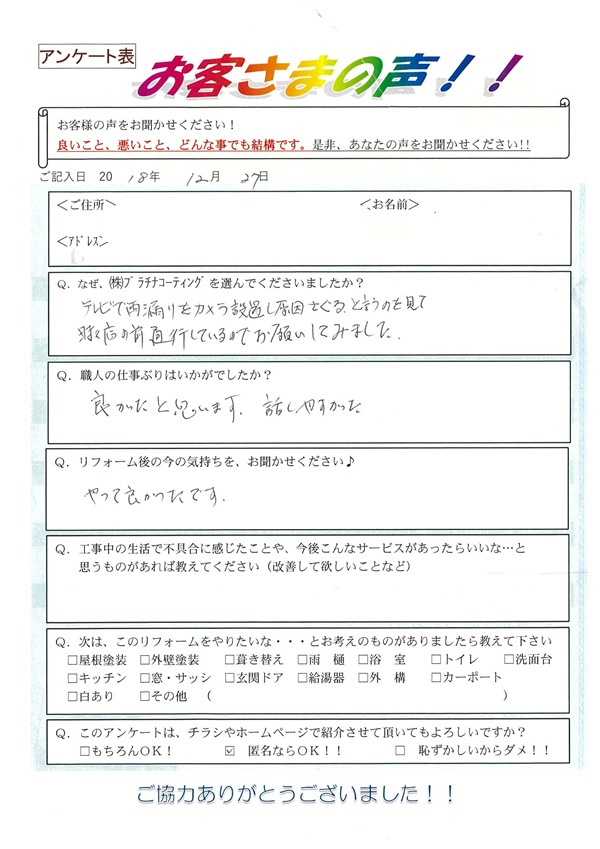 アンケート表
お客さまの声！！
お客様の声をお聞かせください！
良いこと、悪いこと、どんな事でも結構です。是非、あなたの声をお聞かせください!!
ご記入日 20 18年 12月 27日
＜ご住所＞ ＜お名前＞
＜ｱﾄﾞﾚｽ＞
Q．なぜ、㈱ﾌﾟﾗﾁﾅｺｰﾃｨﾝｸﾞを選んでくださいましたか？
テレビで雨漏りをカメラ設置し原因さぐると言うのを見て
店の前 行しているのでお願いしてみました．
Q．職人の仕事ぶりはいかがでしたか？
良かったと思います．話しやすかった
Q．リフォーム後の今の気持ちを、お聞かせください♪
やって良かったです．
Q．工事中の生活で不具合に感じたことや、今後こんなサービスがあったらいいな…と
思うものがあれば教えてください（改善して欲しいことなど）
Q．次は、このリフォームをやりたいな・・・とお考えのものがありましたら教えて下さい
□屋根塗装 □外壁塗装 □葺き替え □雨 樋 □浴 室 □トイレ □洗面台
□キッチン □窓・サッシ □玄関ドア □給湯器 □外 構 □カーポート
□白あり □その他 （ ）
Q．このアンケートは、チラシやホームページで紹介させて頂いてもよろしいですか？
□もちろんOK！ ☑ 匿名ならOK！！ □ 恥ずかしいからダメ！！
ご協力ありがとうございました！！